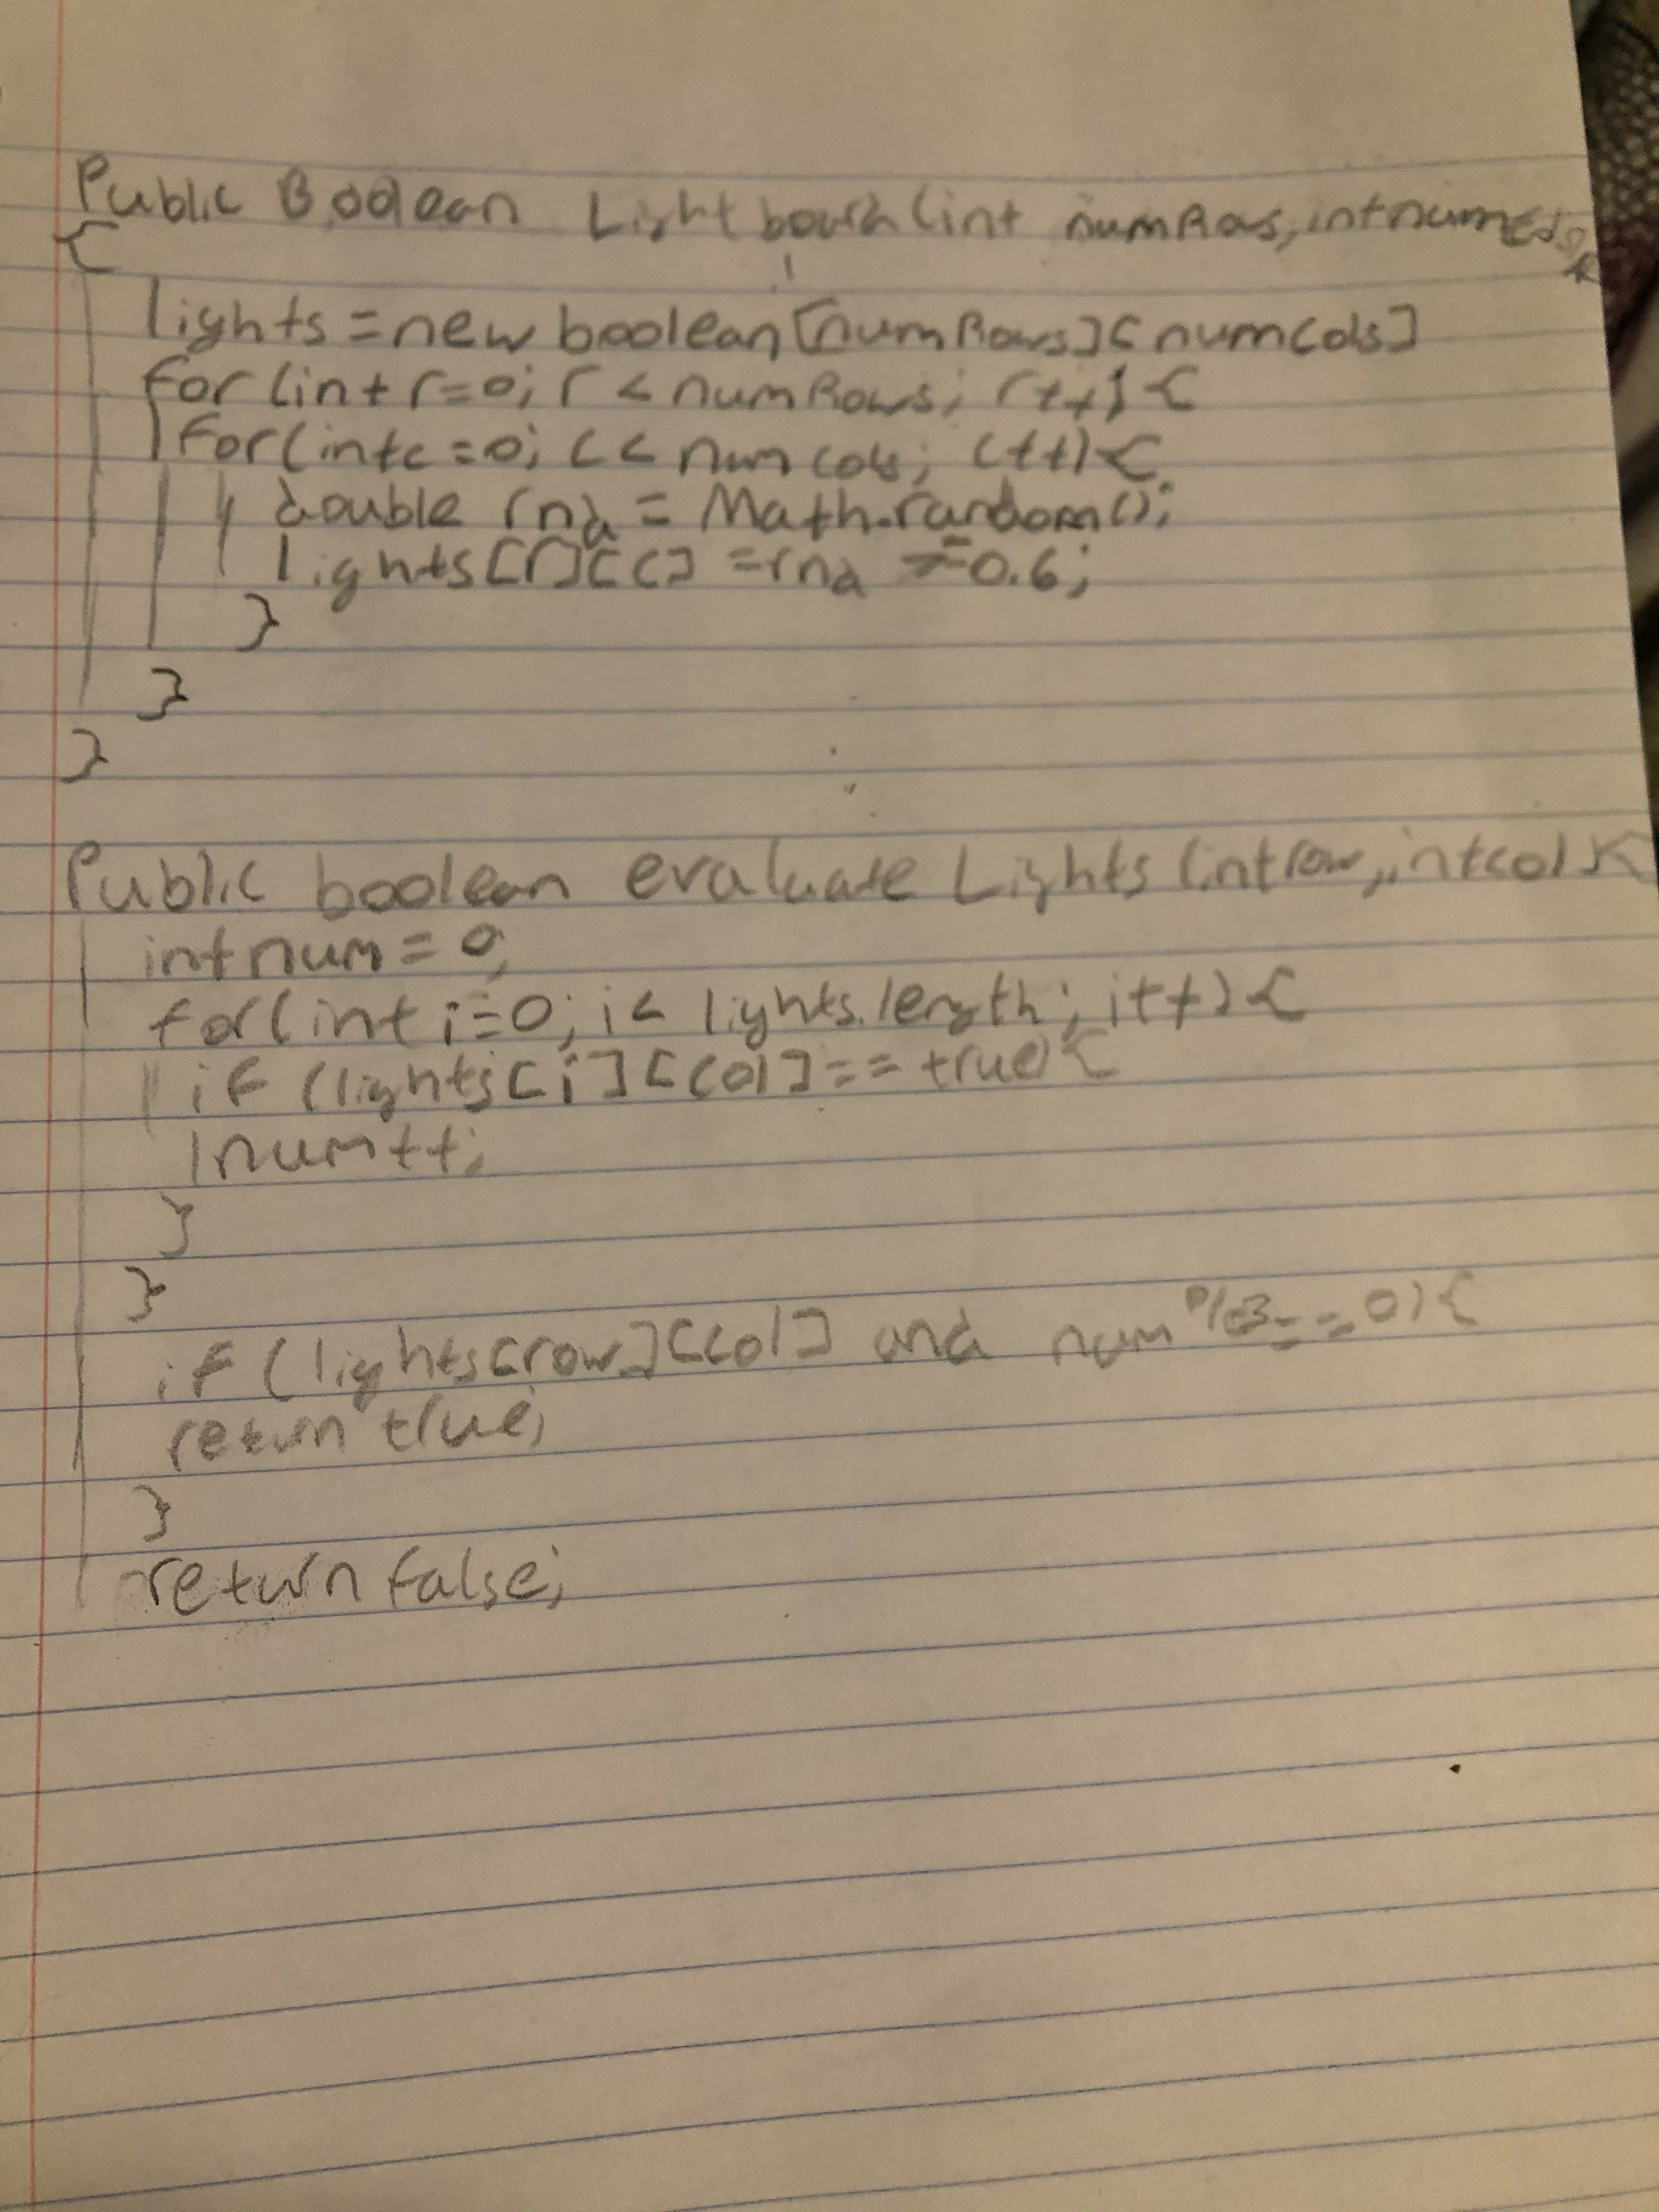 Public Boolean Lightboard (int numRows, int numCols)
{
lights = new boolean [numRows][numCols]
for (int r=0; r < numRows; r++) {
for (int c=0; c < numCols; c++) {
double rnd = Math.random();
lights[r][c] = rnd >= 0.6;
}
}
}
Public boolean evaluate Lights (int row, int col) {
int num = 0;
for (int i=0; i < lights.length; i++) {
if (lights[i][col] == true) {
num++;
}
}
if (lights[row][col] and num %3 == 0) {
return true;
}
return false;